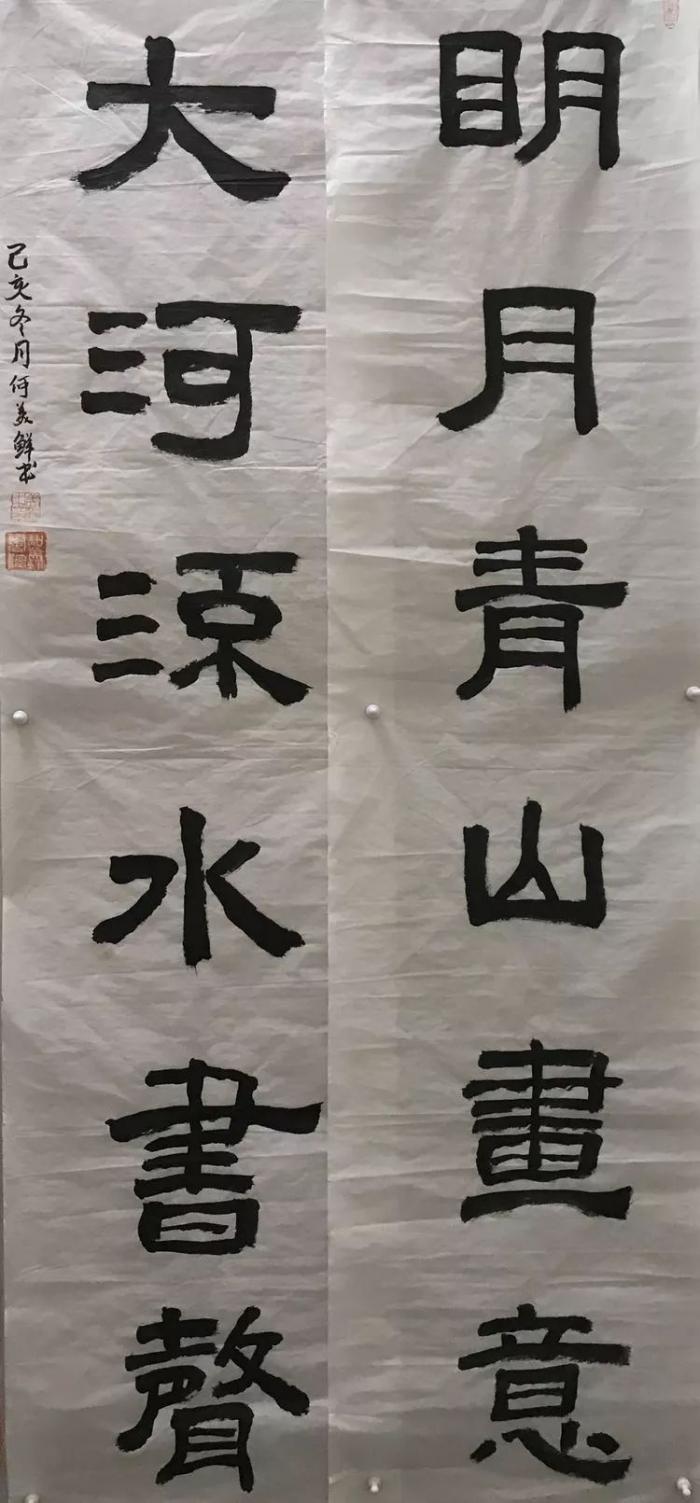 明月青山畫意
大河源水書聲
己亥冬月何美鮮书